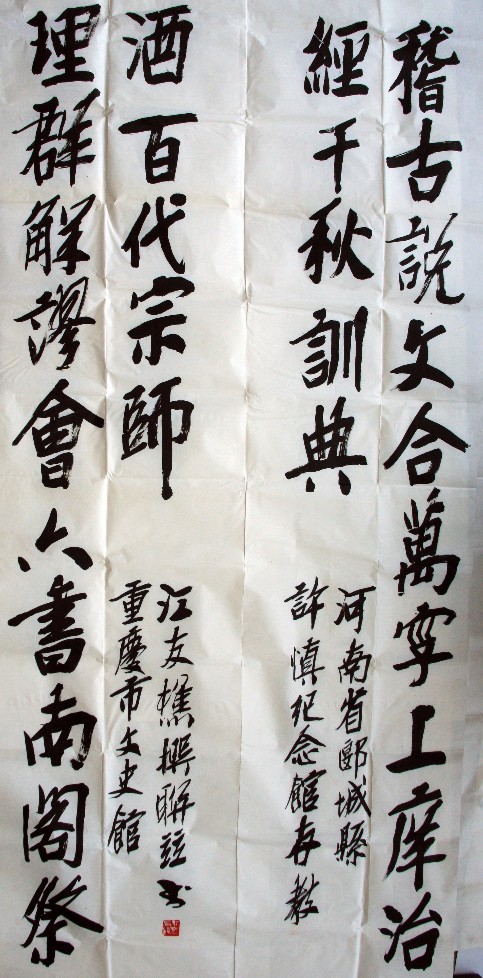 稽古說文合萬字上庠治
經千秋訓典
河南省郾城縣
許慎紀念館存教
理群解謬會六書南閣祭
酒百代宗師
重慶市文史館
江友樵撰聯竝书